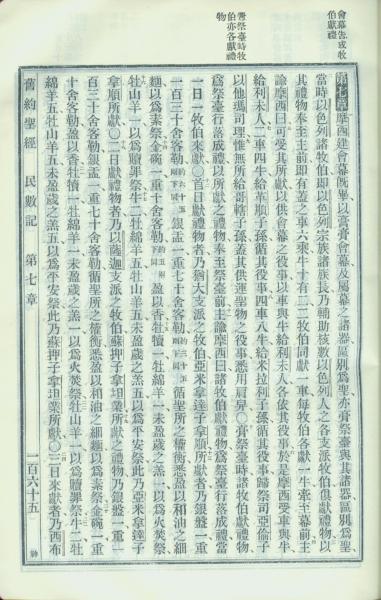 會幕告成牧
伯獻禮
膏祭臺時牧
伯亦各獻禮
物
第七章摩西建會幕既畢以膏膏會幕及屬幕之諸器區別爲聖亦膏祭臺與其諸器區別爲聖
當時以色列諸牧伯即以色列宗族諸族長乃輔助核數以色列人之各支派牧伯俱獻禮物以
其禮物奉至主前即有蓋之車六乘牛十有二二牧伯同獻一車每牧伯各獻一牛牽至幕前主
諭摩西曰可受其所獻以供會幕之役事以車與牛給利未人各依其役事於是摩西受車與牛
給利未人二車四牛給革順子孫循其役事四車八牛給米拉利子孫循其役事歸祭司亞倫子
以他瑪司理惟無所給哥轄子孫蓋其供運聖物之役事悉用肩舁〇膏祭臺時諸牧伯獻禮物
爲祭臺行落成禮以所獻之禮物奉至祭臺前主諭摩西曰諸牧伯獻禮物爲祭臺行落成禮當
一日一牧伯來獻〇首日獻禮物者乃猶大支派之牧伯亞米拿達子拿順所獻者乃銀盤一重
一百三十舍客勒約六十五兩下同銀盂一重七十舍客勒約三十五兩下同循聖所之權衡悉盈以和油之細
麵以爲素祭金碗一重十舍客勒約五兩下同盈以香牡犢一牡綿羊一未盈歲之羔一以爲火焚祭
牡山羊一以爲贖罪祭牛二牡綿羊五牡山羊五未盈歲之羔五以爲平安祭此乃亞米拿達子
拿順所獻〇二日獻禮物者乃以薩迦支派之牧伯蘇押子拿坦業所獻之禮物乃銀盤一重一
百三十舍客勒銀盂一重七十舍客勒循聖所之權衡悉盈以和油之細麵以爲素祭金碗一重
十舍客勒盈以香牡犢一牡綿羊一未盈歲之羔一以爲火焚祭牡山羊一以爲贖罪祭牛二牡
綿羊五牡山羊五未盈歲之羔五以爲平安祭此乃蘇押子拿坦業所獻〇三日來獻者乃西布
舊約聖經 民數記 第七章 一百六十五